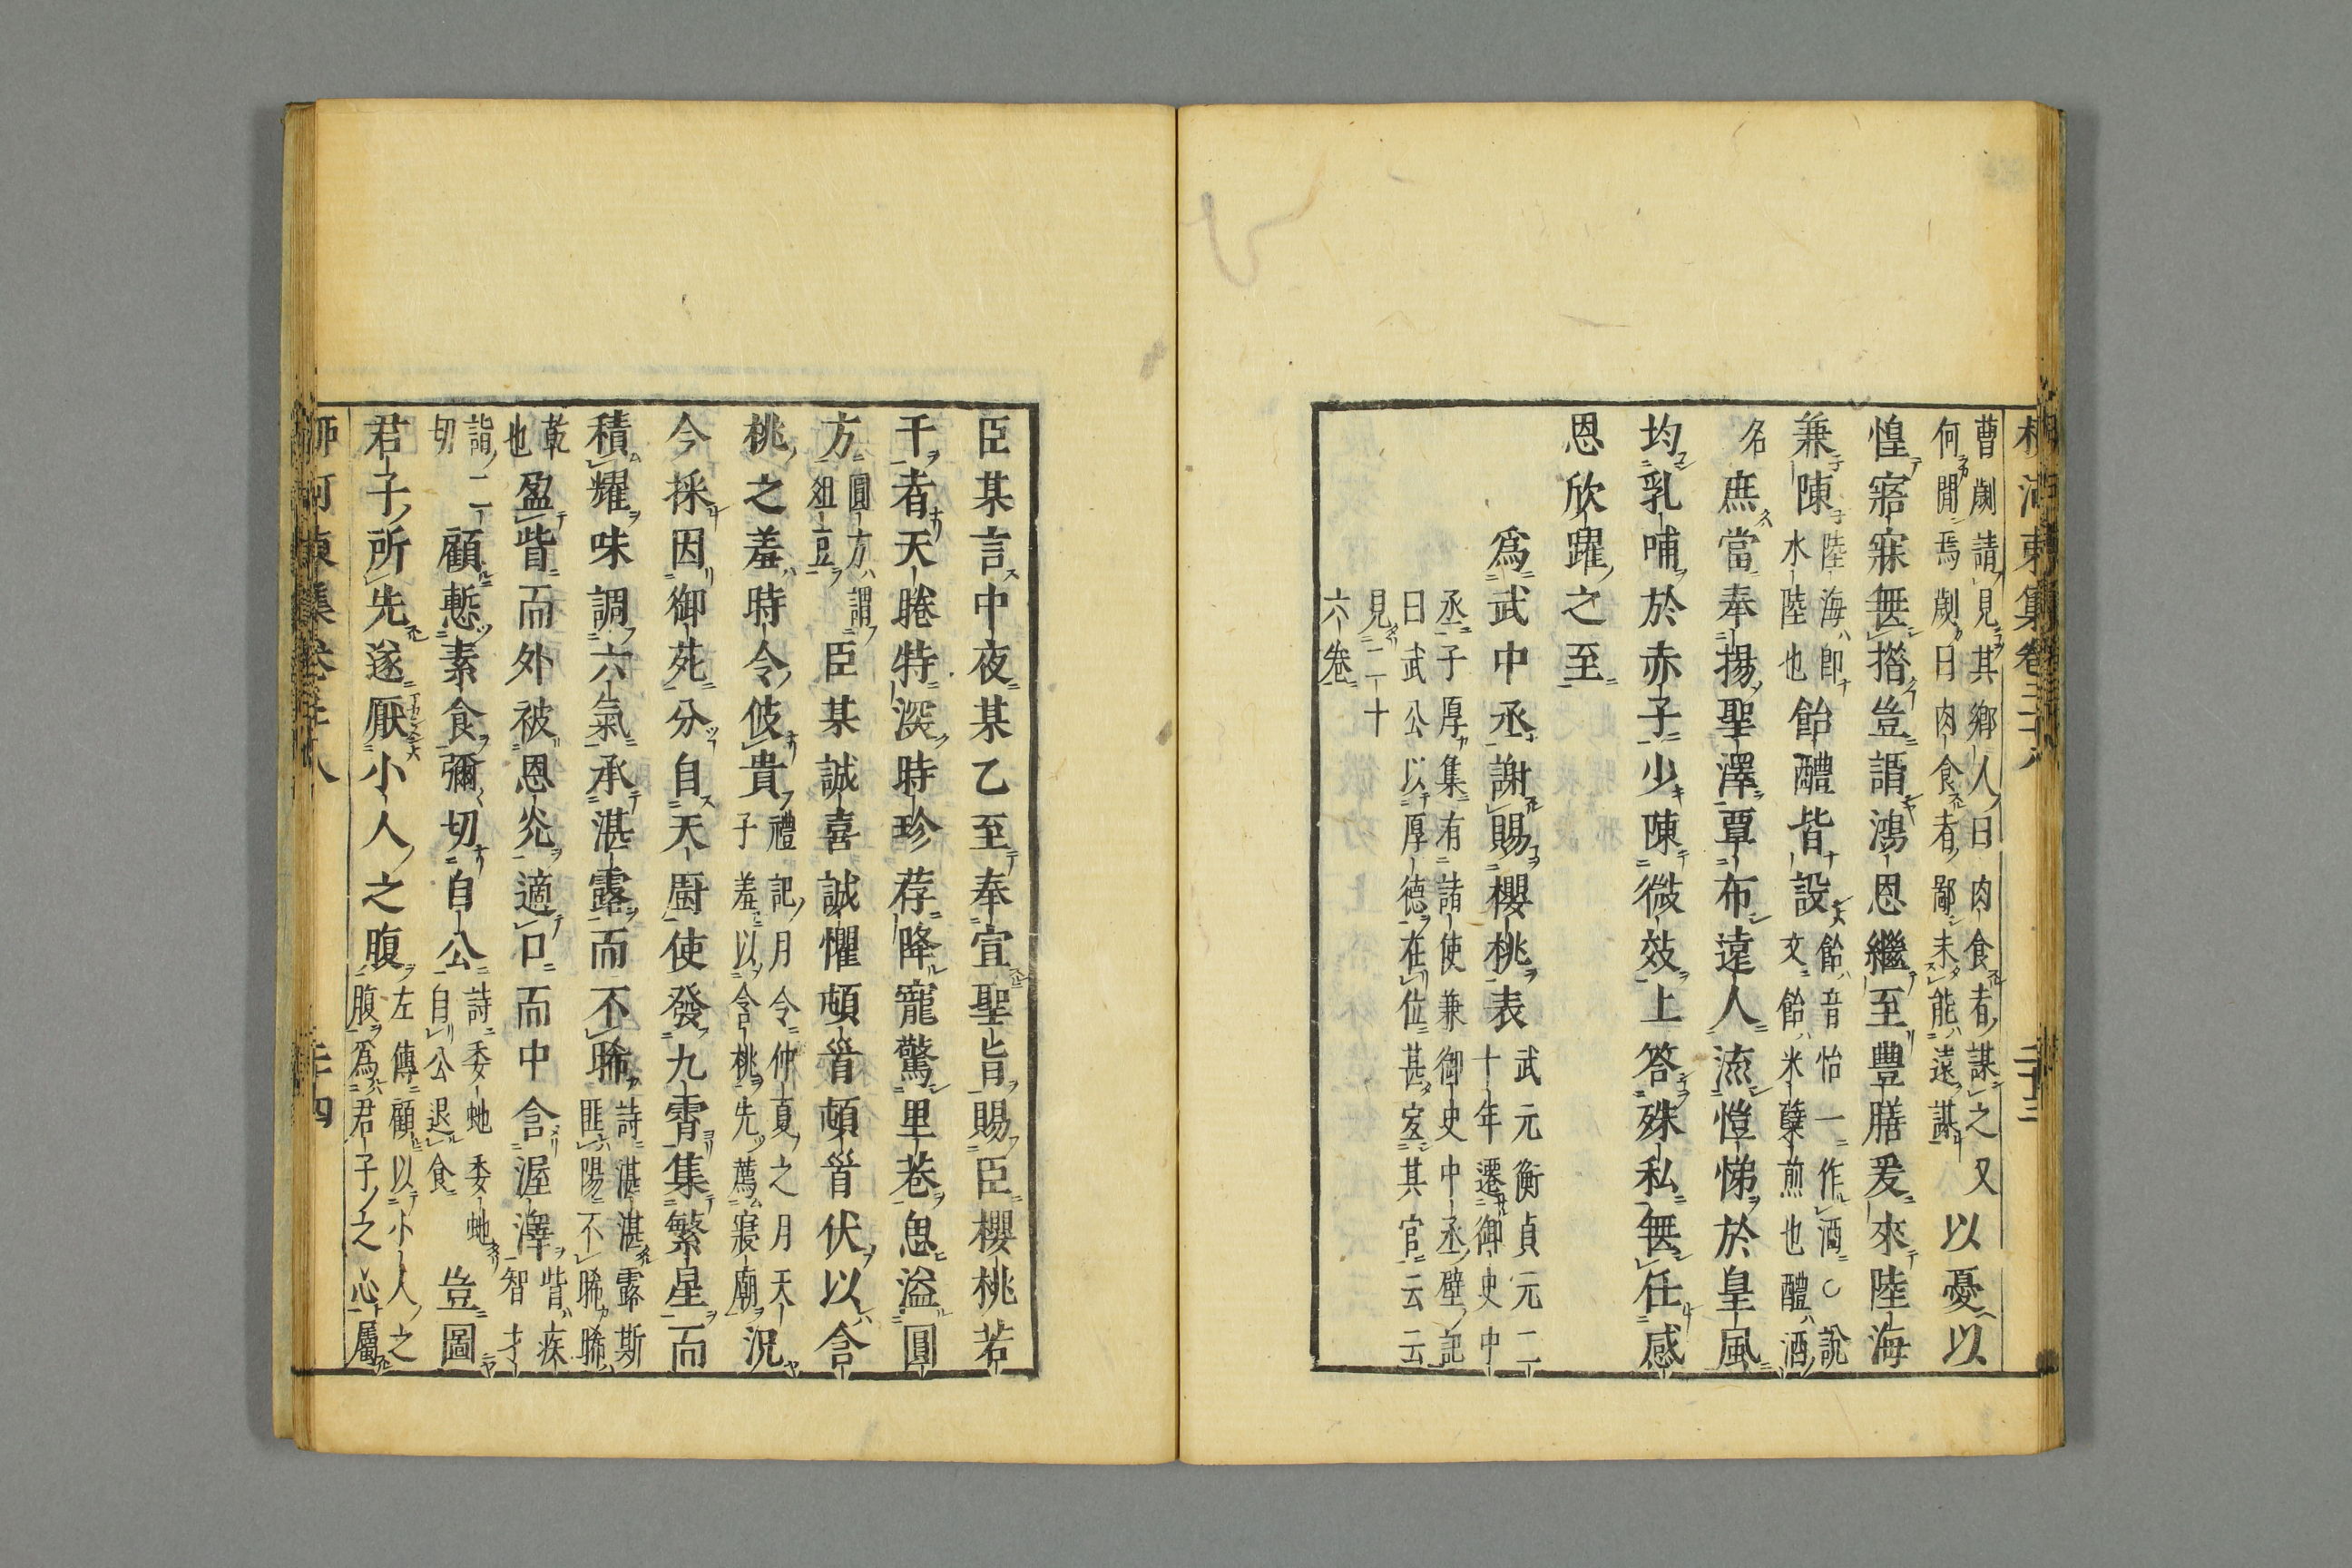 柳河東集卷三十八　二十三
曹劌請見其鄉人曰肉食者謀之又
何間焉劌曰肉食者鄙未能遠謀
以憂以
惶寤寐無措豈謂鴻恩繼至豐膳爰來陸海
兼陳
陸海卽
水陸也
飴醴皆設
飴音怡一作酒〇說
文飴米糵煎也醴酒
名
庶當奉揚聖澤覃布遠人流愷悌於皇風
均乳哺於赤子少陳微效上答殊私無任感
恩欣躍之至
爲武中丞謝賜櫻桃表
武元衡貞元二
十年遷御史中
丞子厚集有諸使兼御史中丞壁記
曰武公以厚德在位甚宜其官云云
見二十
六卷
臣某言中夜某乙至奉宣聖旨賜臣櫻桃若
干者天睠特深時珍荐降寵驚里巷恩溢圓
方
圓方謂
俎豆
臣某誠喜誠懼頓首頓首伏以含
桃之羞時令攸貴
禮記月令仲夏之月天
子羞以含桃先薦寢廟
況
今採因御苑分自天廚使發九霄集繁星而
積耀味調六氣承湛露而不晞
詩湛湛露斯
匪陽不晞晞
乾
也
盈眥而外被恩光適口而中含渥澤
眥疾
智才
詣二
切
顧慙素食彌切自公
詩委蛇委蛇
自公退食
豈圖
君子所先遂厭小人之腹
左傳顧以小人之
腹爲君子之心屬
柳河東集卷三十八　二十四